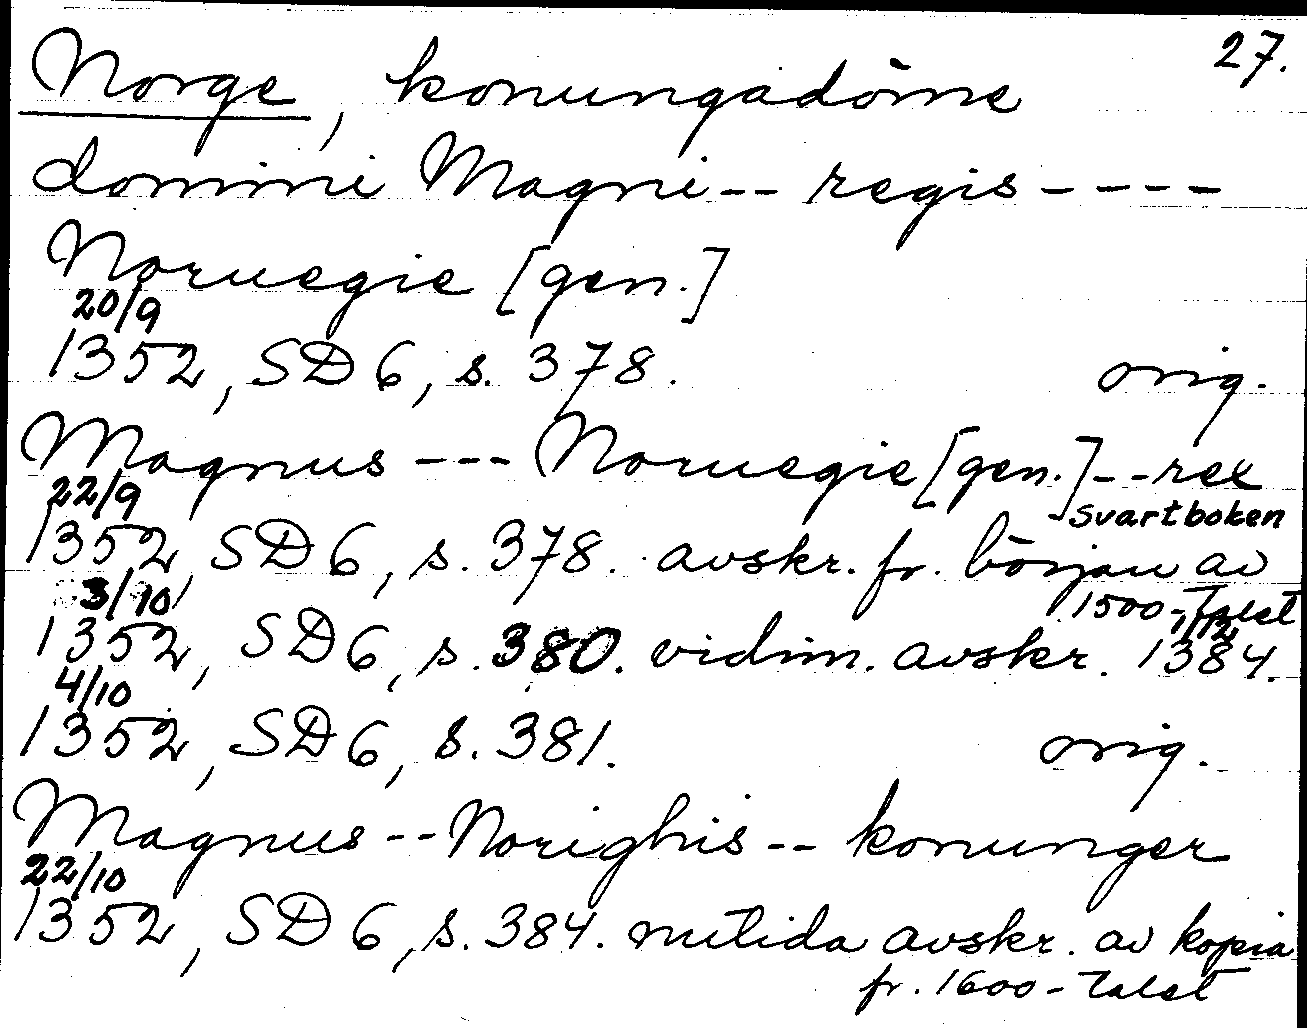 27.
Norge, konungadöme
domini Magni -- regis ----
Noruegie [gen.]
20/9
1352, SD 6, s. 378. orig.
Magnus --- Noruegie [gen.] -- rex
22/9 svartboken
1352, SD 6, s. 378. avskr. fr. början av
3/10 1500-talet
1/12
1352, SD 6, s. 380. vidim. avskr. 1384.
4/10
1352, SD 6, s. 381. orig.
Magnus -- Norighis -- konunger
22/10
1352, SD 6, s. 384. nutida avskr. av kopia
fr. 1600-talet